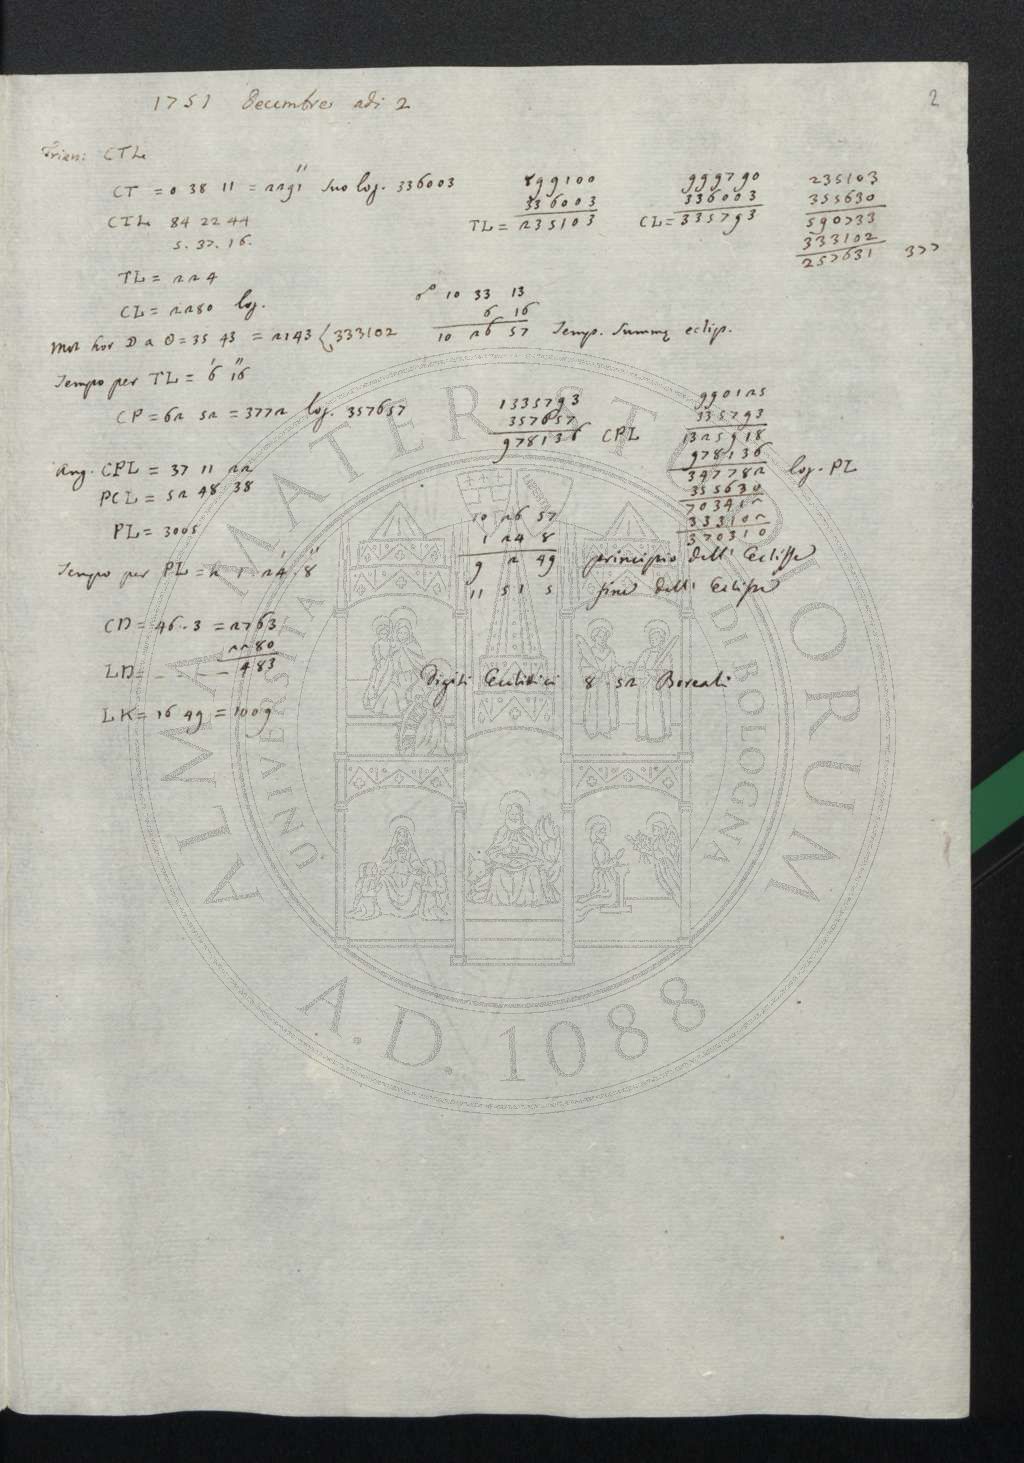 2
1751 Decembre adi 2
Trian: CTL
CT = 0 38 11 = 2291'' suo log. 336003
CTL 84 22 44
5. 37. 16.
TL = 224
CL = 2280 log.
Mot hor D a O = 35 43 = 2143 { 333102
Tempo per TL = 6' 16''
CP = 62 52 = 3772 log. 357657
Ang. CPL = 37 11 22
PCL = 52 48 38
PL = 3005
Tempo per PL = h 1. 24' 8''
CD = 46. 3 = 2763
2280
LD = - - - - 483
LK = 16 49 = 1009
899100
336003
TL = 235103
999790
336003
CL = 335793
235103
355630
590733
333102
257631 377
10 33 13
6 16
10 26 57 Temp. Summę eclip.
1335793
357657
978136 CPL
990125
335793
1325918
978136
347782 log. PL
355630
703412
333102
370310
10 26 57
1 24 8
9 2 49 principio dell' Eclisse
11 51 5 fine dell' Eclisse
Digiti Eclittici 8. 52 Boreali
ALMA MATER STUDIORUM
UNIVERSITÀ DI BOLOGNA
A.D. 1088